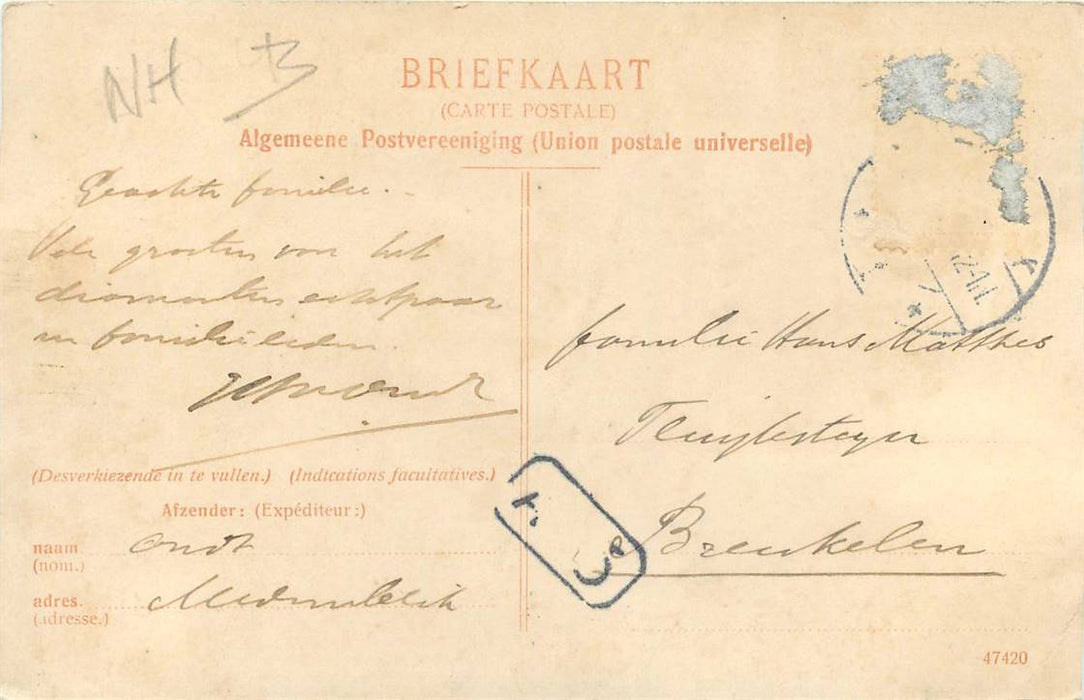 NH
BRIEFKAART
(CARTE POSTALE)
Algemeene Postvereeniging (Union postale universelle)
Geachte familie.-
Vele groeten van het
diamanten echtpaar
en familieleden.
familie Hans Matthes
Breukelen
(Desverkiezende in te vullen.) (Indications facultatives.)
Afzender: (Expéditeur:)
naam
(nom.)
adres. Medemblik
(adresse.)
47420